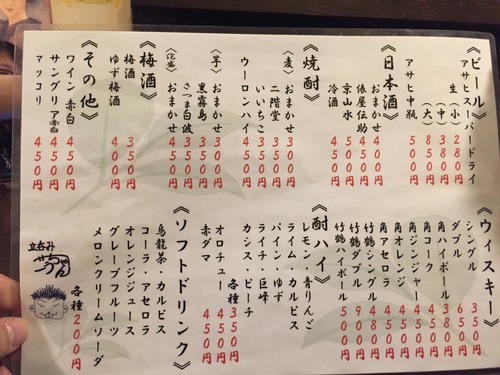 《ビール》
アサヒスーパードライ
生(小) 280円
(中) 380円
(大) 880円
アサヒ中瓶 550円
《日本酒》
おまかせ 400円
俵屋伝助
京山水
冷酒 450円
《焼酎》
(麦) おまかせ 300円
二階堂
いいちこ
ウーロンハイ
(芋) おまかせ
黒霧島
さつま白波
おまかせ
《梅酒》
梅酒 350円
ゆず梅酒 400円
《その他》
ワイン 赤白 400円
サングリア赤白 450円
マッコリ 450円
《ウィスキー》
シングル 350円
ダブル
角ハイボール
角コーク
角ジンジャー
角オレンジ
角アセロラ
竹鶴シングル
竹鶴ダブル
竹鶴ハイボール 500円
《酎ハイ》
レモン・青りんご
ライム・カルピス
パイン・ゆず
ライチ・巨峰
カシス・ピーチ
各種 350円
オロチュー 400円
赤ダマ 450円
《ソフトドリンク》
烏龍茶 カルピス
コーラ・アセロラ
オレンジジュース
グレープフルーツ
メロンクリームソーダ
各種 200円
立呑み